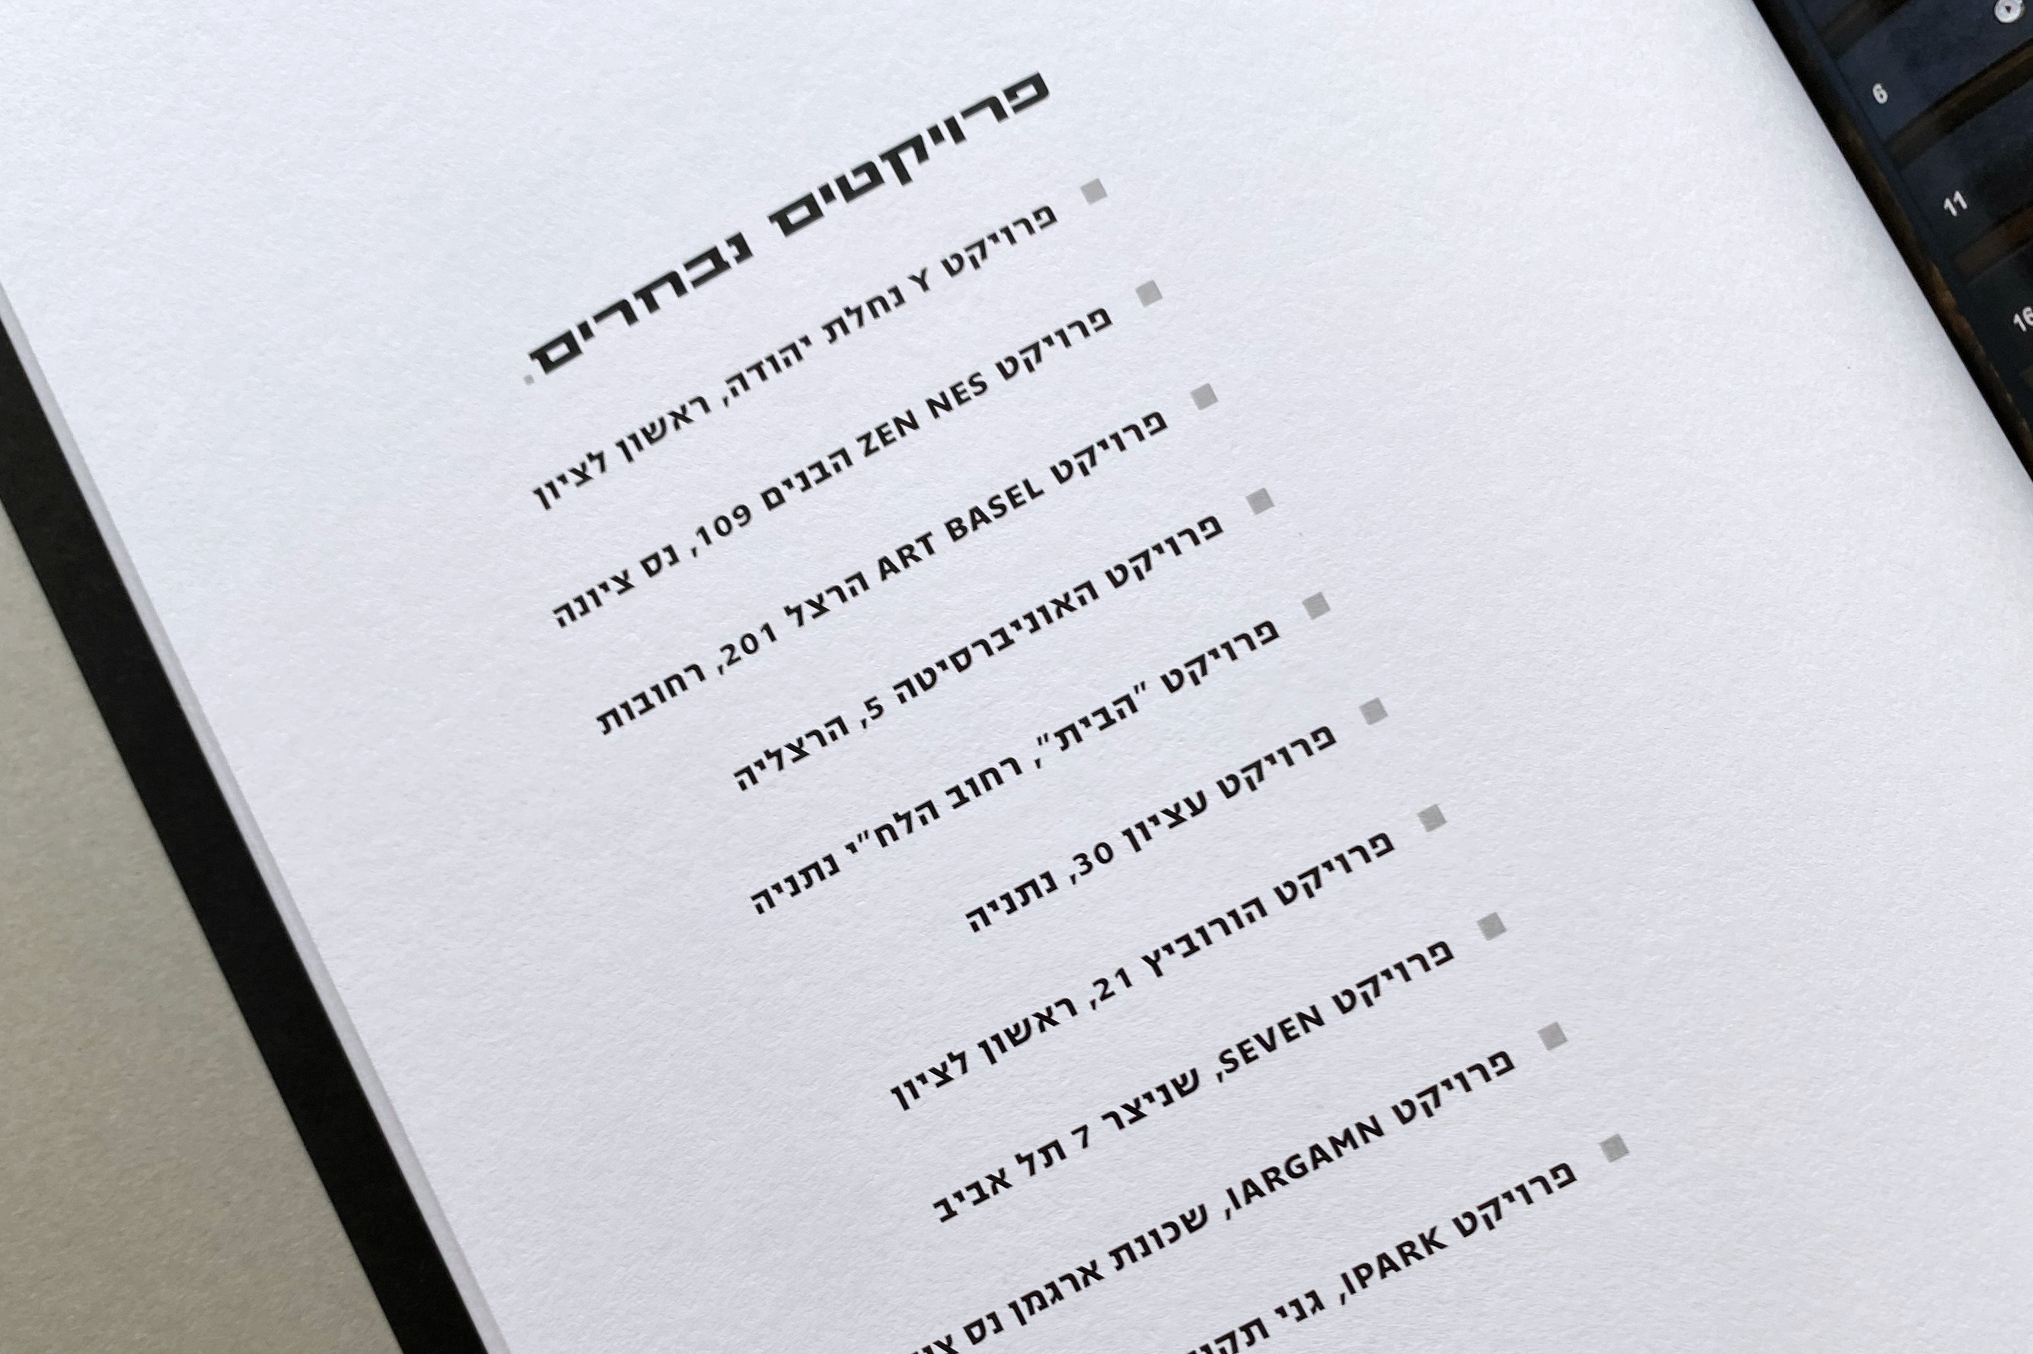 פרויקטים נבחרים.
פרויקט Y נחלת יהודה, ראשון לציון
פרויקט ZEN NES הבנים 109, נס ציונה
פרויקט ART BASEL הרצל 201, רחובות
פרויקט האוניברסיטה 5, הרצליה
פרויקט "הבית", רחוב הלח"י נתניה
פרויקט עציון 30, נתניה
פרויקט הורוביץ 21, ראשון לציון
פרויקט SEVEN, שניצר 7 תל אביב
פרויקט IARGAMN, שכונת ארגמן נס
פרויקט IPARK, גני
6
11
16